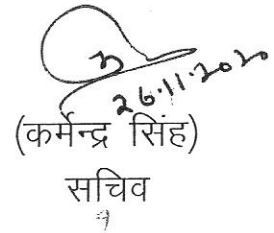 26.11.2020
(कर्मेन्द्र सिंह)
सचिव